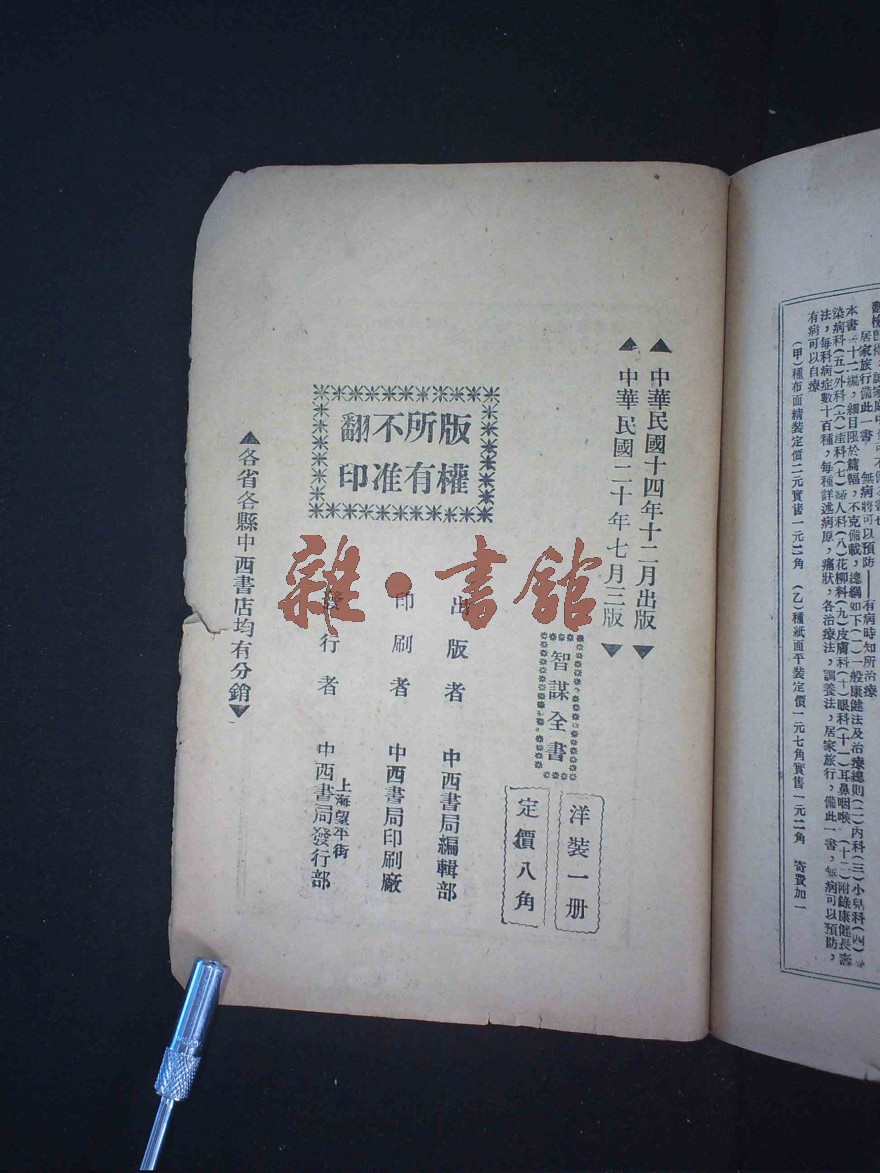 居家旅行備此一書　無病將可以預防——有病時知所治療
本書十二編，細目限於篇幅，不克備載，總綱如下(一)一般康健法及治療總則(二)內科(三)小兒科(四)
染病科(五)外科(六)產科(七)婦人科(八)花柳科(九)皮膚科(十)眼科(十一)耳鼻咽喉(十二)附錄康健長壽
法，每科病症數十百種，每種詳述病原，病狀，各治療法，調養法，居家旅行，備此一書，無病可以預防，
有病可以自療
(甲)種布面精裝定價二元實售一元二角　(乙)種紙面平裝定價一元七角實售一元二角　寄費加一
▲中華民國十四年十二月出版▼
▲中華民國二十年七月三版▼
智謀全書
洋裝一册
定價八角
版權
所有
不准
翻印
出版者　中西書局編輯部
印刷者　中西書局印刷廠
發行者　上海望平街
中西書局發行部
▲各省各縣中西書店均有分銷▼
雜·書館